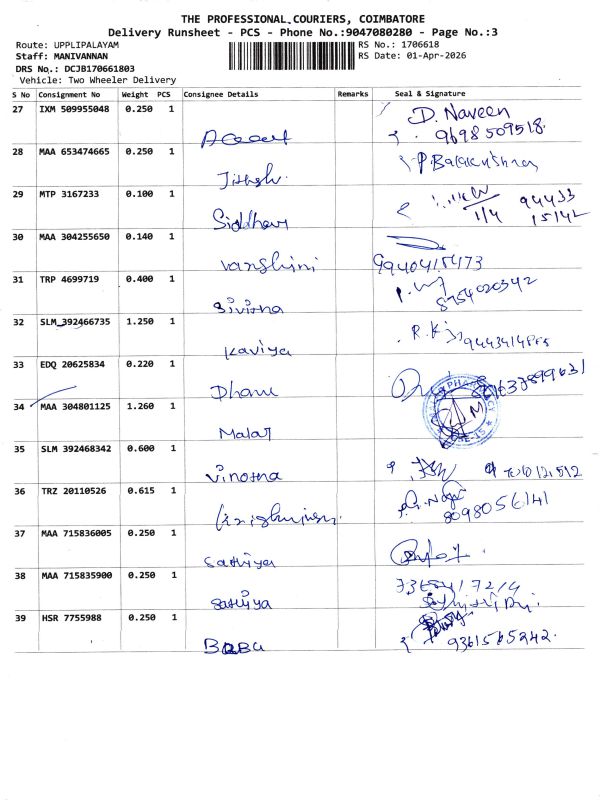 THE PROFESSIONAL COURIERS, COIMBATORE
Delivery Runsheet - PCS - Phone No.:9047080280 - Page No.:3
Route: UPPLIPALAYAM RS No.: 1706618
Staff: MANIVANNAN RS Date: 01-Apr-2026
DRS No.: DCJB170661803
Vehicle: Two Wheeler Delivery
S No Consignment No Weight PCS Consignee Details Remarks Seal & Signature
27 IXM 509955048 0.250 1 D. Naveen
9698509518
28 MAA 653474665 0.250 1
29 MTP 3167233 0.100 1 94433
Siddharv 1/4 15142
30 MAA 304255650 0.140 1
Vanshini 9940415473
31 TRP 4699719 0.400 1 8754020342
32 SLM 392466735 1.250 1 R.K
Kaviya
33 EDQ 20625834 0.220 1
Dhanu
34 MAA 304801125 1.260 1
Malar
35 SLM 392468342 0.600 1
Vinotha
36 TRZ 20110526 0.615 1
8098056141
37 MAA 715836005 0.250 1
Sathiya
38 MAA 715835900 0.250 1
Sathiya
39 HSR 7755988 0.250 1
Babu 9361565242